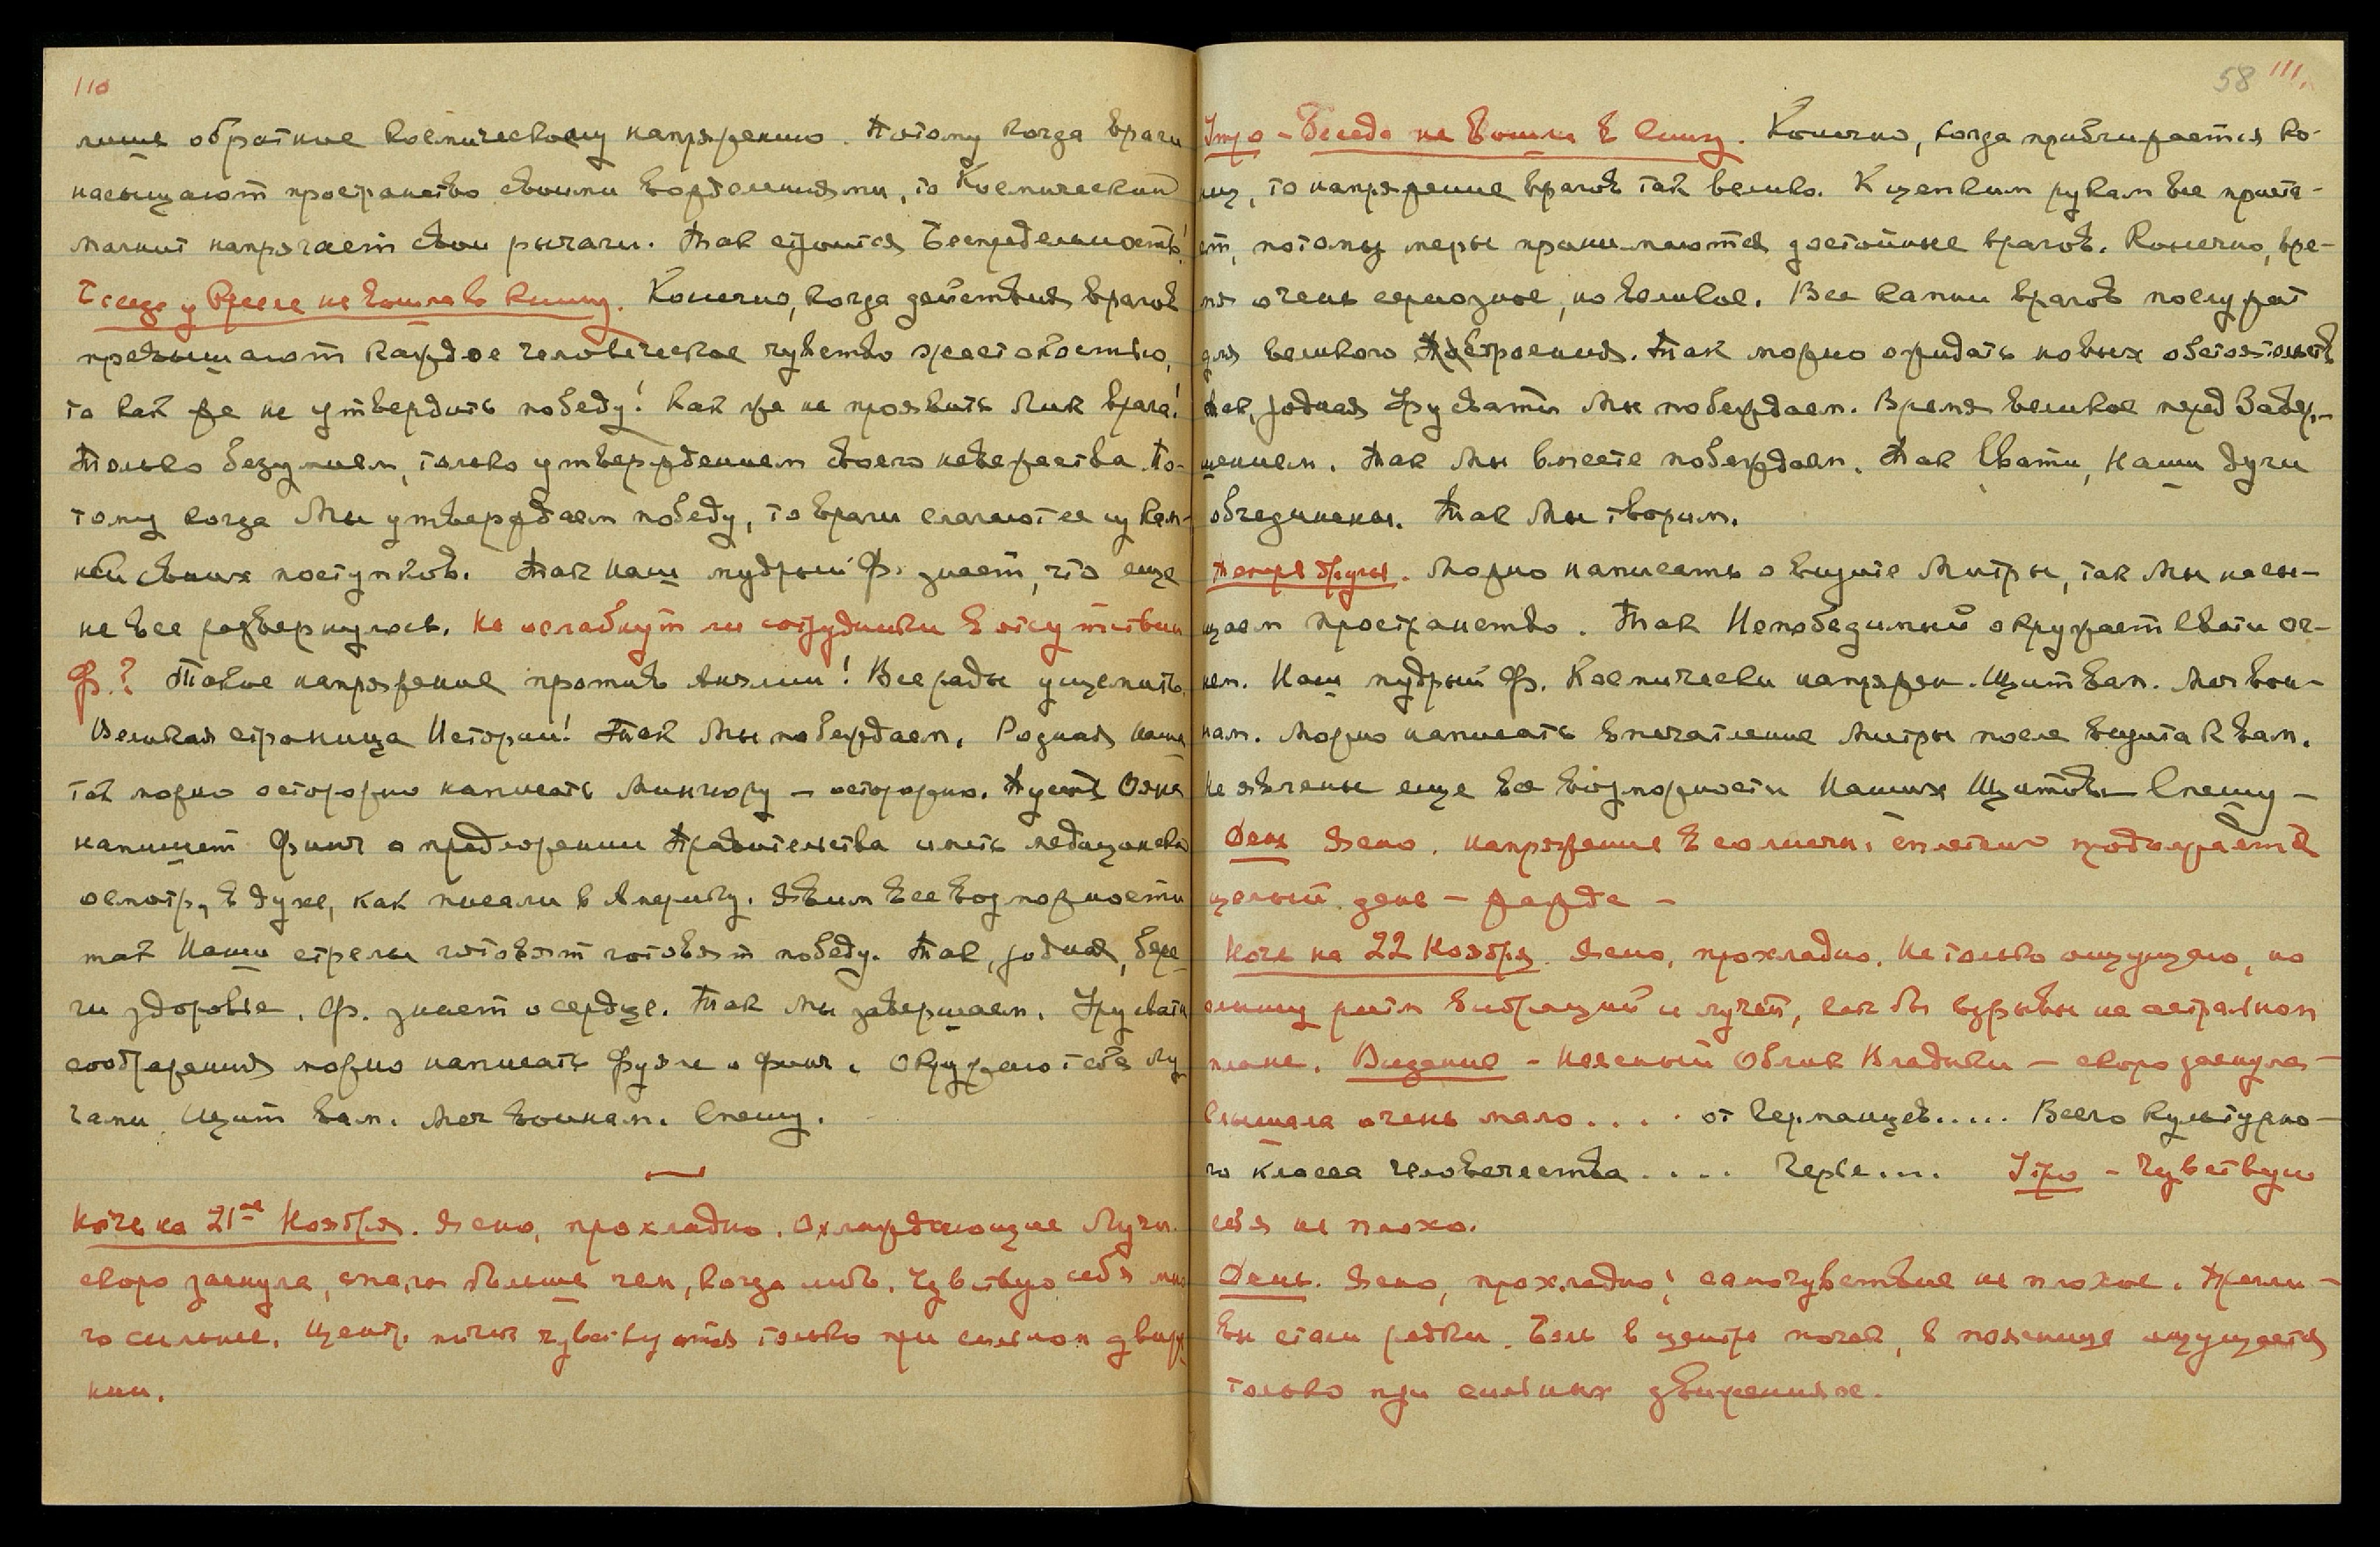 110
лишь обратное космическому напряжению. Потому когда враги
насыщают пространство своими вожделениями, то Космический
Магнит напрягает свои рычаги. Так строится Беспредельность!
Беседа у Кресле не вошла в книгу. Конечно, когда действия врагов
превышают каждое человеческое чувство жестокостью,
то как же не утвердить победу! Как же не проявить Лик врага!
Только безумием, только утверждением своего невежества. По-
тому когда Мы утверждаем победу, то врачи слагаются из кам-
ней своих поступков. Так Наш мудрый Ф. знает, что еще
не все развернулось. Не ослабнут ли сотрудники в отсутствии
Ф.? Такое напряжение против Англии! Все рады ущемить.
Великая страница Истории! Так Мы побеждаем, Родная Наша
Так можно осторожно написать Мингюру – осторожно. Пусть Ояна
напишет Финч о предложении Правительства иметь медицинский
осмотр, в духе, как писали в Америку. Явим все возможности
так Наши стрелы готовят готовят победу. Так, родная, бере-
ги здоровье. Ф. знает о сердце. Так Мы завершаем. Урусвати
соображения можно написать Фуяме и Финч. Окружаю тебя Лу-
чами. Щит вам. Меч воинам. Спешу.
Ночь на 21ое Ноября. Ясно, прохладно. Охлаждающие Лучи.
скоро заснула, спала больше чем, когда либо. Чувствую себя мно-
го сильнее. Центр. почек чувствуются только при сильном движе-
нии.
58 111.
Утро – Беседа не вошли в книгу. Конечно, когда приближается ко-
нец, то напряжение врагов так велико. К цепким рукам все приста-
ет, потому меры принимаются достойные врагов. Конечно, вре-
мя очень серьезное, но великое. Все камни врагов послужат
для великого построения. Так можно ожидать новых обстоятельств
Так, родная Урусвати Мы побеждаем. Время великое перед Завер-
шением. Так Мы вместе побеждаем. Так Свати, Наши духи
объединены. Так Мы творим.
Теперь другое. Можно написать о визите Митры, так Мы насы-
щаем пространство. Так Непобедимый окружает Свати ог-
нем. Наш мудрый Ф. Космически напряжен. Щит вам. Меч вои-
нам. Можно написать впечатление Митры после визита к вам.
Не явлены еще все возможности Наших Щитов – Спешу –
День Ясно. напряжение в солнечн. сплетении продолжается
целый день – жажда –
Ночь на 22 Ноября. Ясно, прохладно. Не только ощущаю, но
слышу ритм вибраций и лучей, как бы взрывы на астральном
плане. Видение – Неясный Облик Владыки – скоро заснула –
Слышала очень мало . . . . от Германцев..... Всего культурно-
го класса человечества . . . . Червь... Утро – Чувствую
себя не плохо.
День. Ясно, прохладно; самочувствие не плохое. Прили-
вы стали редки. Боль в центре почек, в пояснице ощущается
только при сильных движениях.